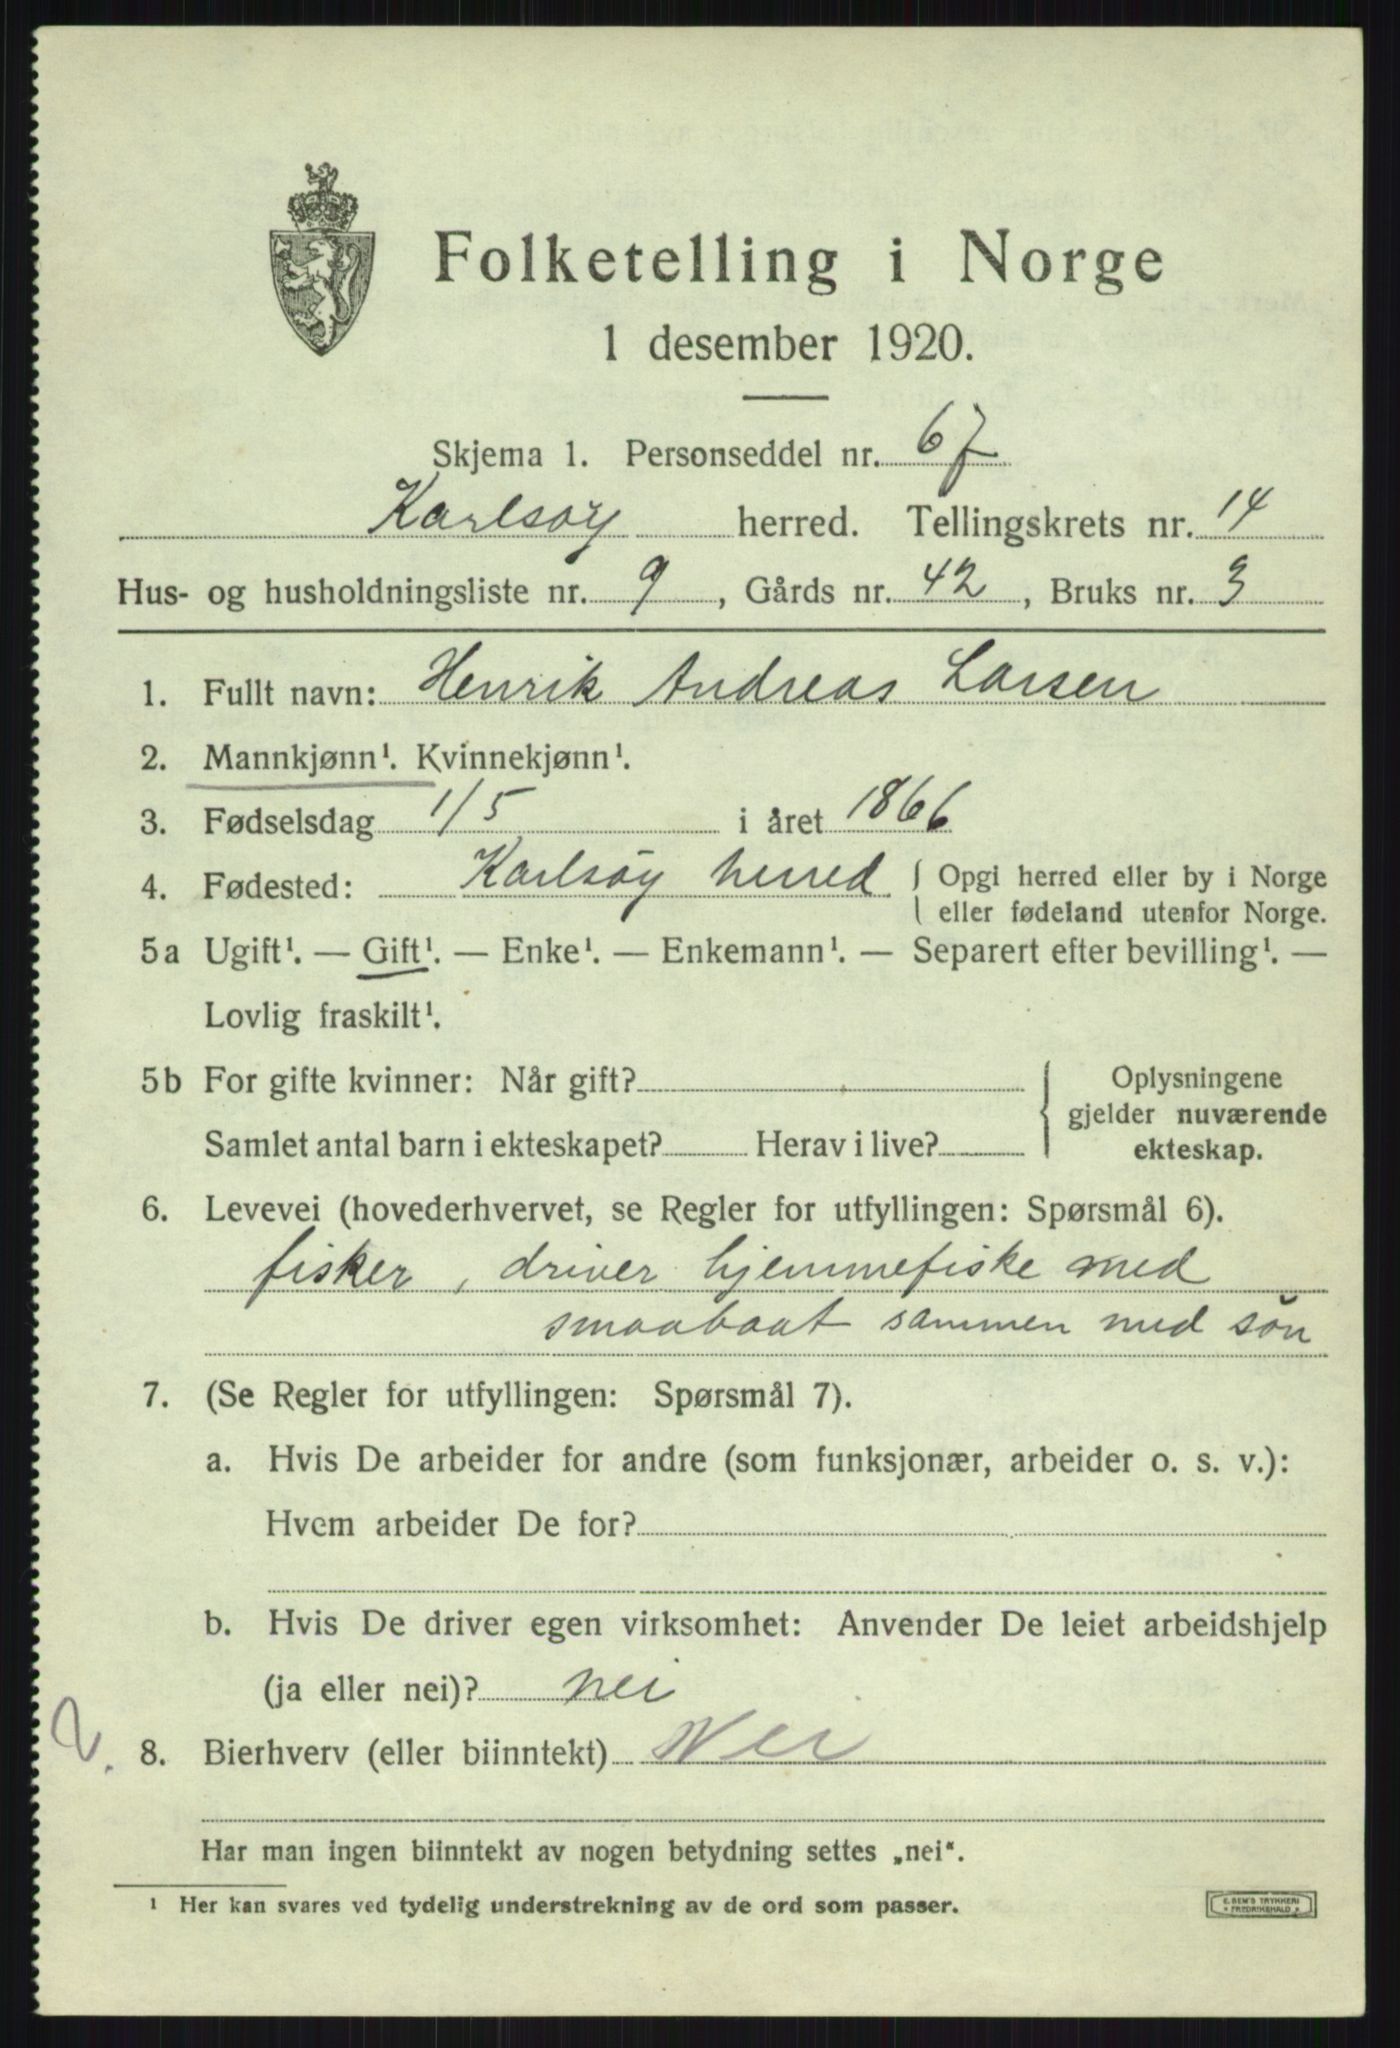 Folketelling i Norge
1 desember 1920.
Skjema 1. Personseddel nr. 67
Karlsöy herred. Tellingskrets nr. 14
Hus- og husholdningsliste nr. 9, Gårds nr. 42, Bruks nr. 3
1. Fullt navn: Henrik Andreas Larsen
2. Mannkjønn¹. Kvinnekjønn¹.
3. Fødselsdag 1/5 i året 1866
4. Fødested: Karlsöy herred { Opgi herred eller by i Norge
eller fødeland utenfor Norge.
5a Ugift¹. — Gift¹. — Enke¹. — Enkemann¹. — Separert efter bevilling¹. —
Lovlig fraskilt¹.
5b For gifte kvinner: Når gift? { Oplysningene
gjelder nuværende
Samlet antal barn i ekteskapet? Herav i live? ekteskap.
6. Levevei (hovederhvervet, se Regler for utfyllingen: Spørsmål 6).
fisker, driver hjemmefiske med
smaabaat sammen med sön
7. (Se Regler for utfyllingen: Spørsmål 7).
a. Hvis De arbeider for andre (som funksjonær, arbeider o. s. v.):
Hvem arbeider De for?
b. Hvis De driver egen virksomhet: Anvender De leiet arbeidshjelp
(ja eller nei)? nei
2. 8. Bierhverv (eller biinntekt) Nei
Har man ingen biinntekt av nogen betydning settes „nei“.
¹ Her kan svares ved tydelig understrekning av de ord som passer.
E. SEM'S TRYKKERI
FREDRIKSHALD